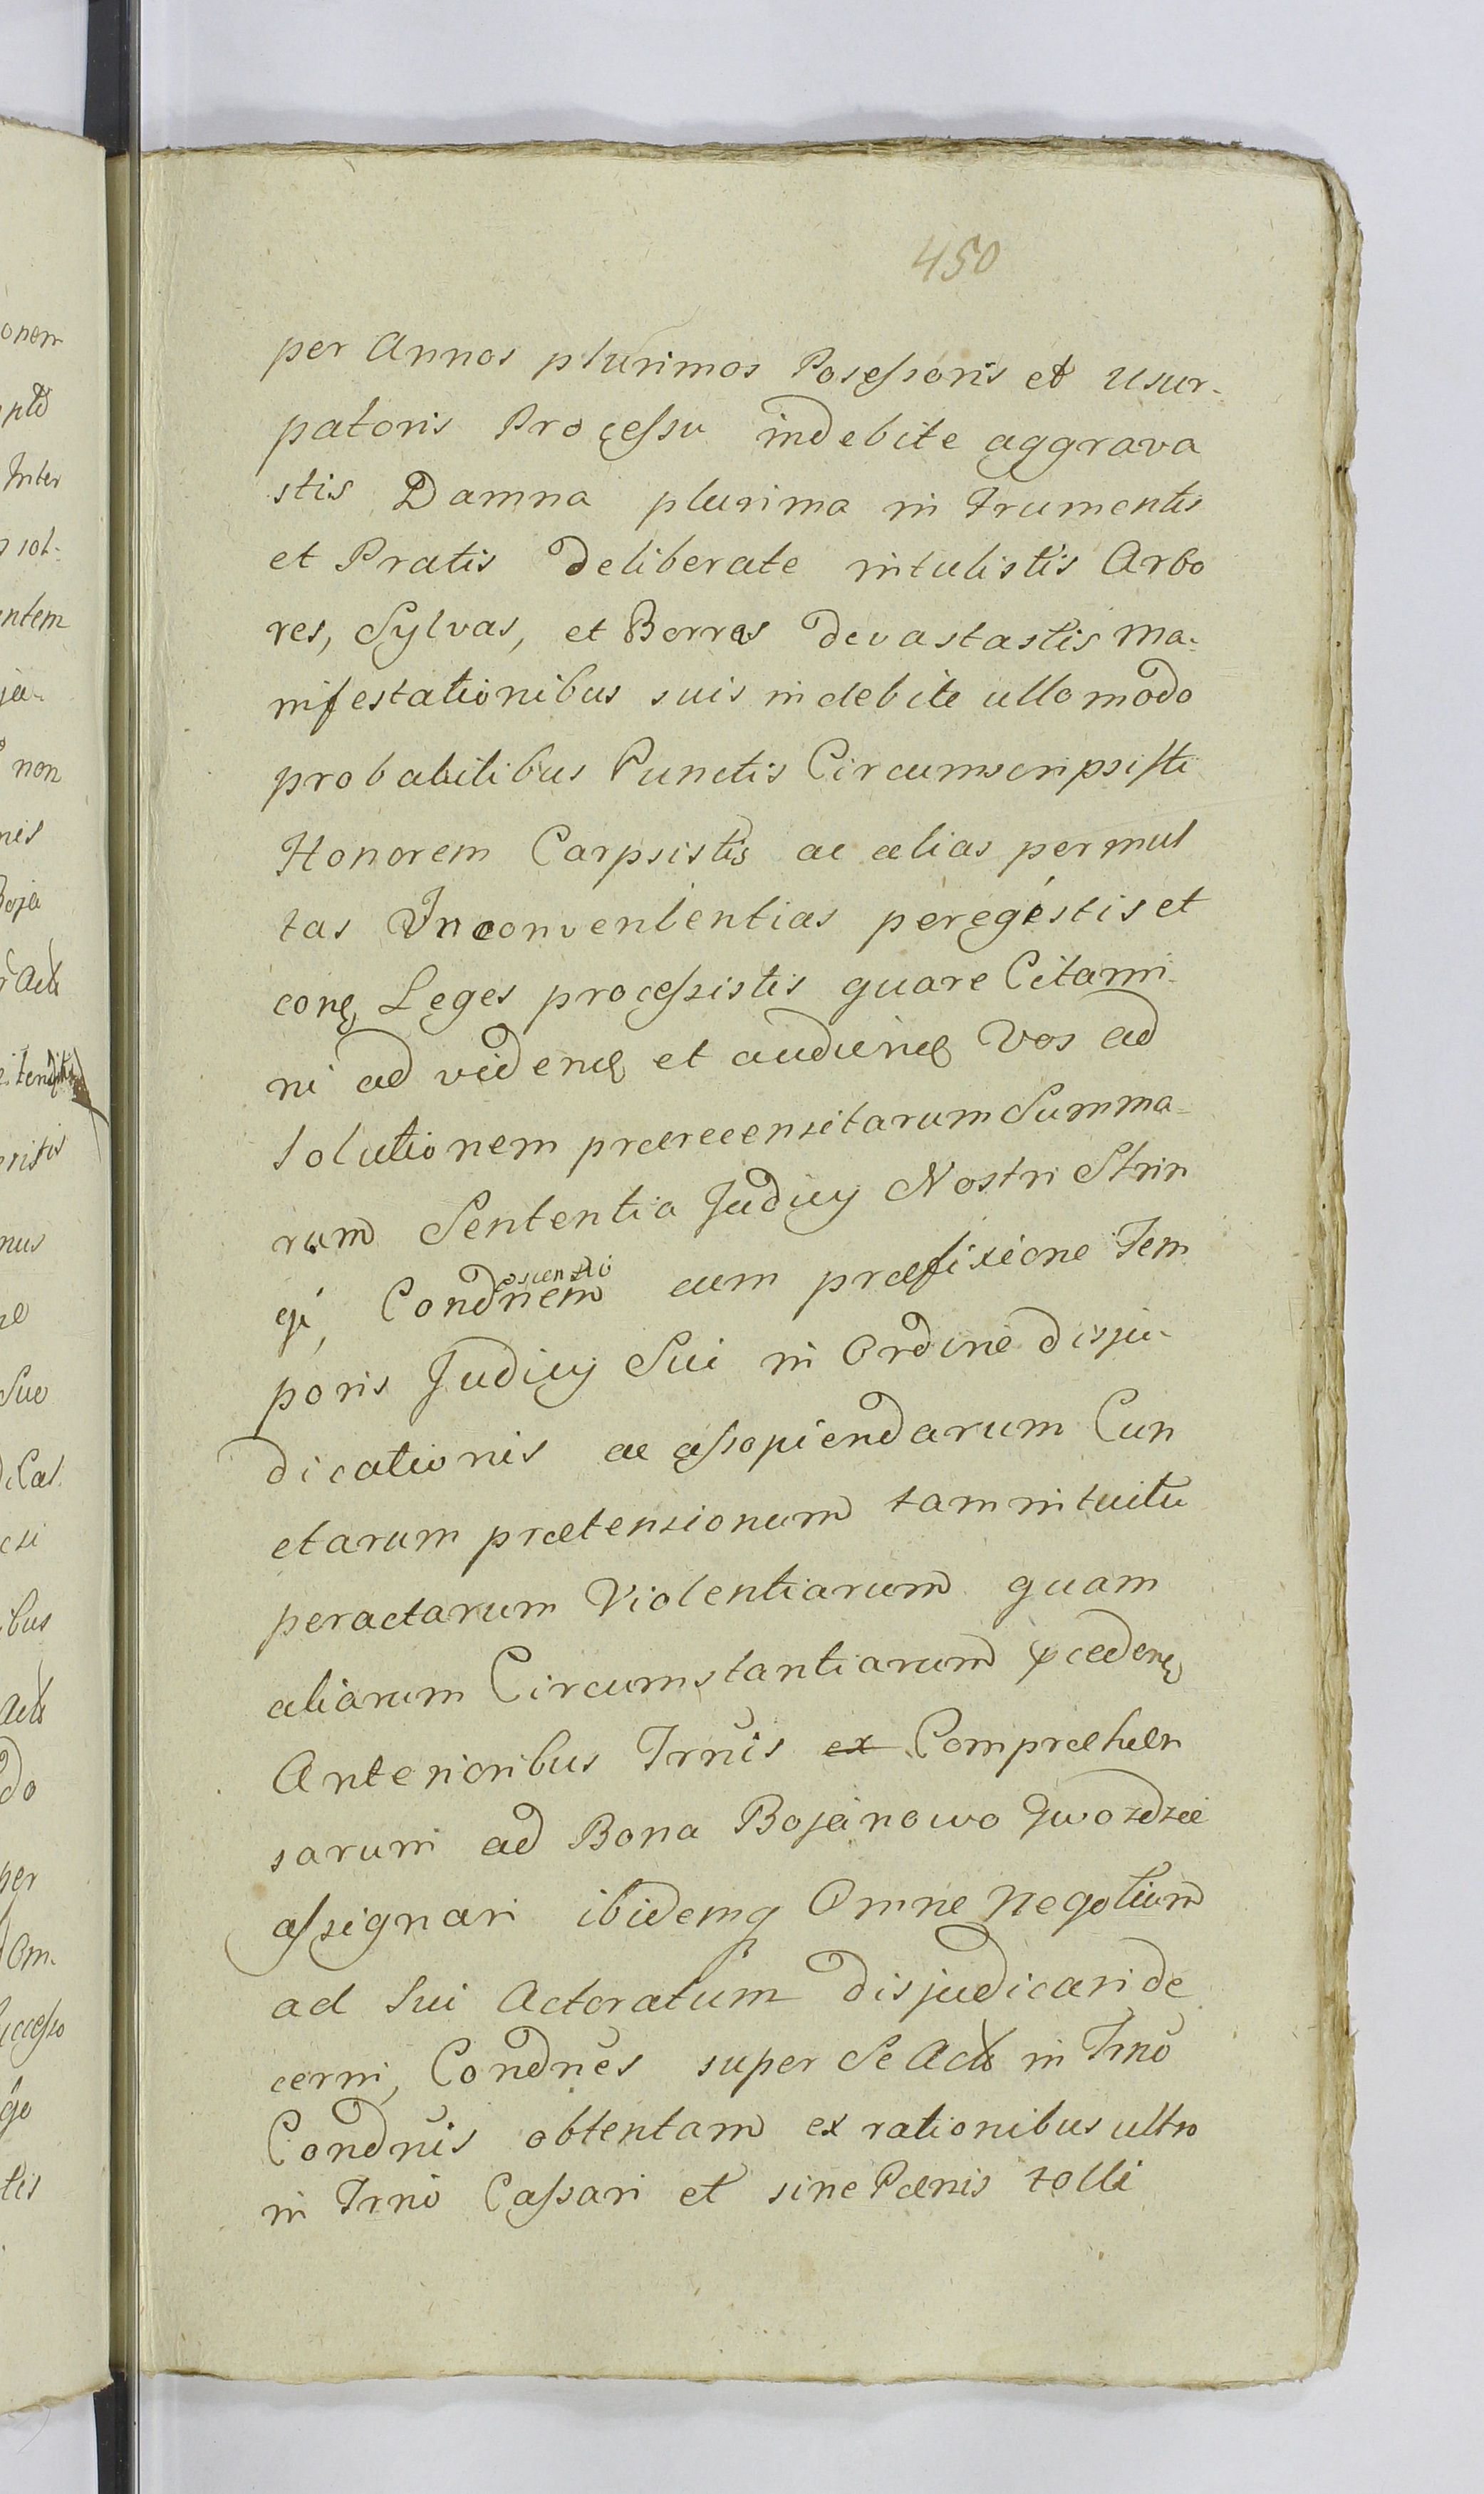 450
per Annos plurimos Posessoris et Usur-
patoris Processu indebite aggrava
stis Damna plurima in Frumentis
et Pratis deliberate intulistis Arbo
res, Sylvas, et Borras devastastis Ma-
nifestationibus suis indebite ullo modo
probabilibus Punctis Circumscripsisti
Honorem Carpsistis ac alias permul
tas Inconvenientias peregistis et
conę Leges processistis quare Citami-
ni ad videnę et audienę Vos ad
Solutionem prærecensitarum Summa-
rum Sententia Judicij Nostri Strin
gi, Condnem cum præfixione Tem
poris Judicij Sui in Ordine disju-
dicationis ac assopiendarum Cun
ctarum prætensionum tam intuitu
peractarum Violentiarum quam
aliarum Circumstantiarum pcedenę
Anterioribus Trnis ex Compræhen
sarum ad Bona Bojanowo Gwozdzie
assignari ibidemq Omne Negotium
ad Sui Actoratum disjudicari de
cerni, Condnes super Se Actt in Trno
Condnis obtentam ex rationibus ultro
in Trno Cassari et sine Pænis tolli
onem
Inter
sol-
entem
ja-
non
nes
Boja
Actt
nus
Suo
Cas
esi
ibus
Actt
do
per
Om-
go
tis